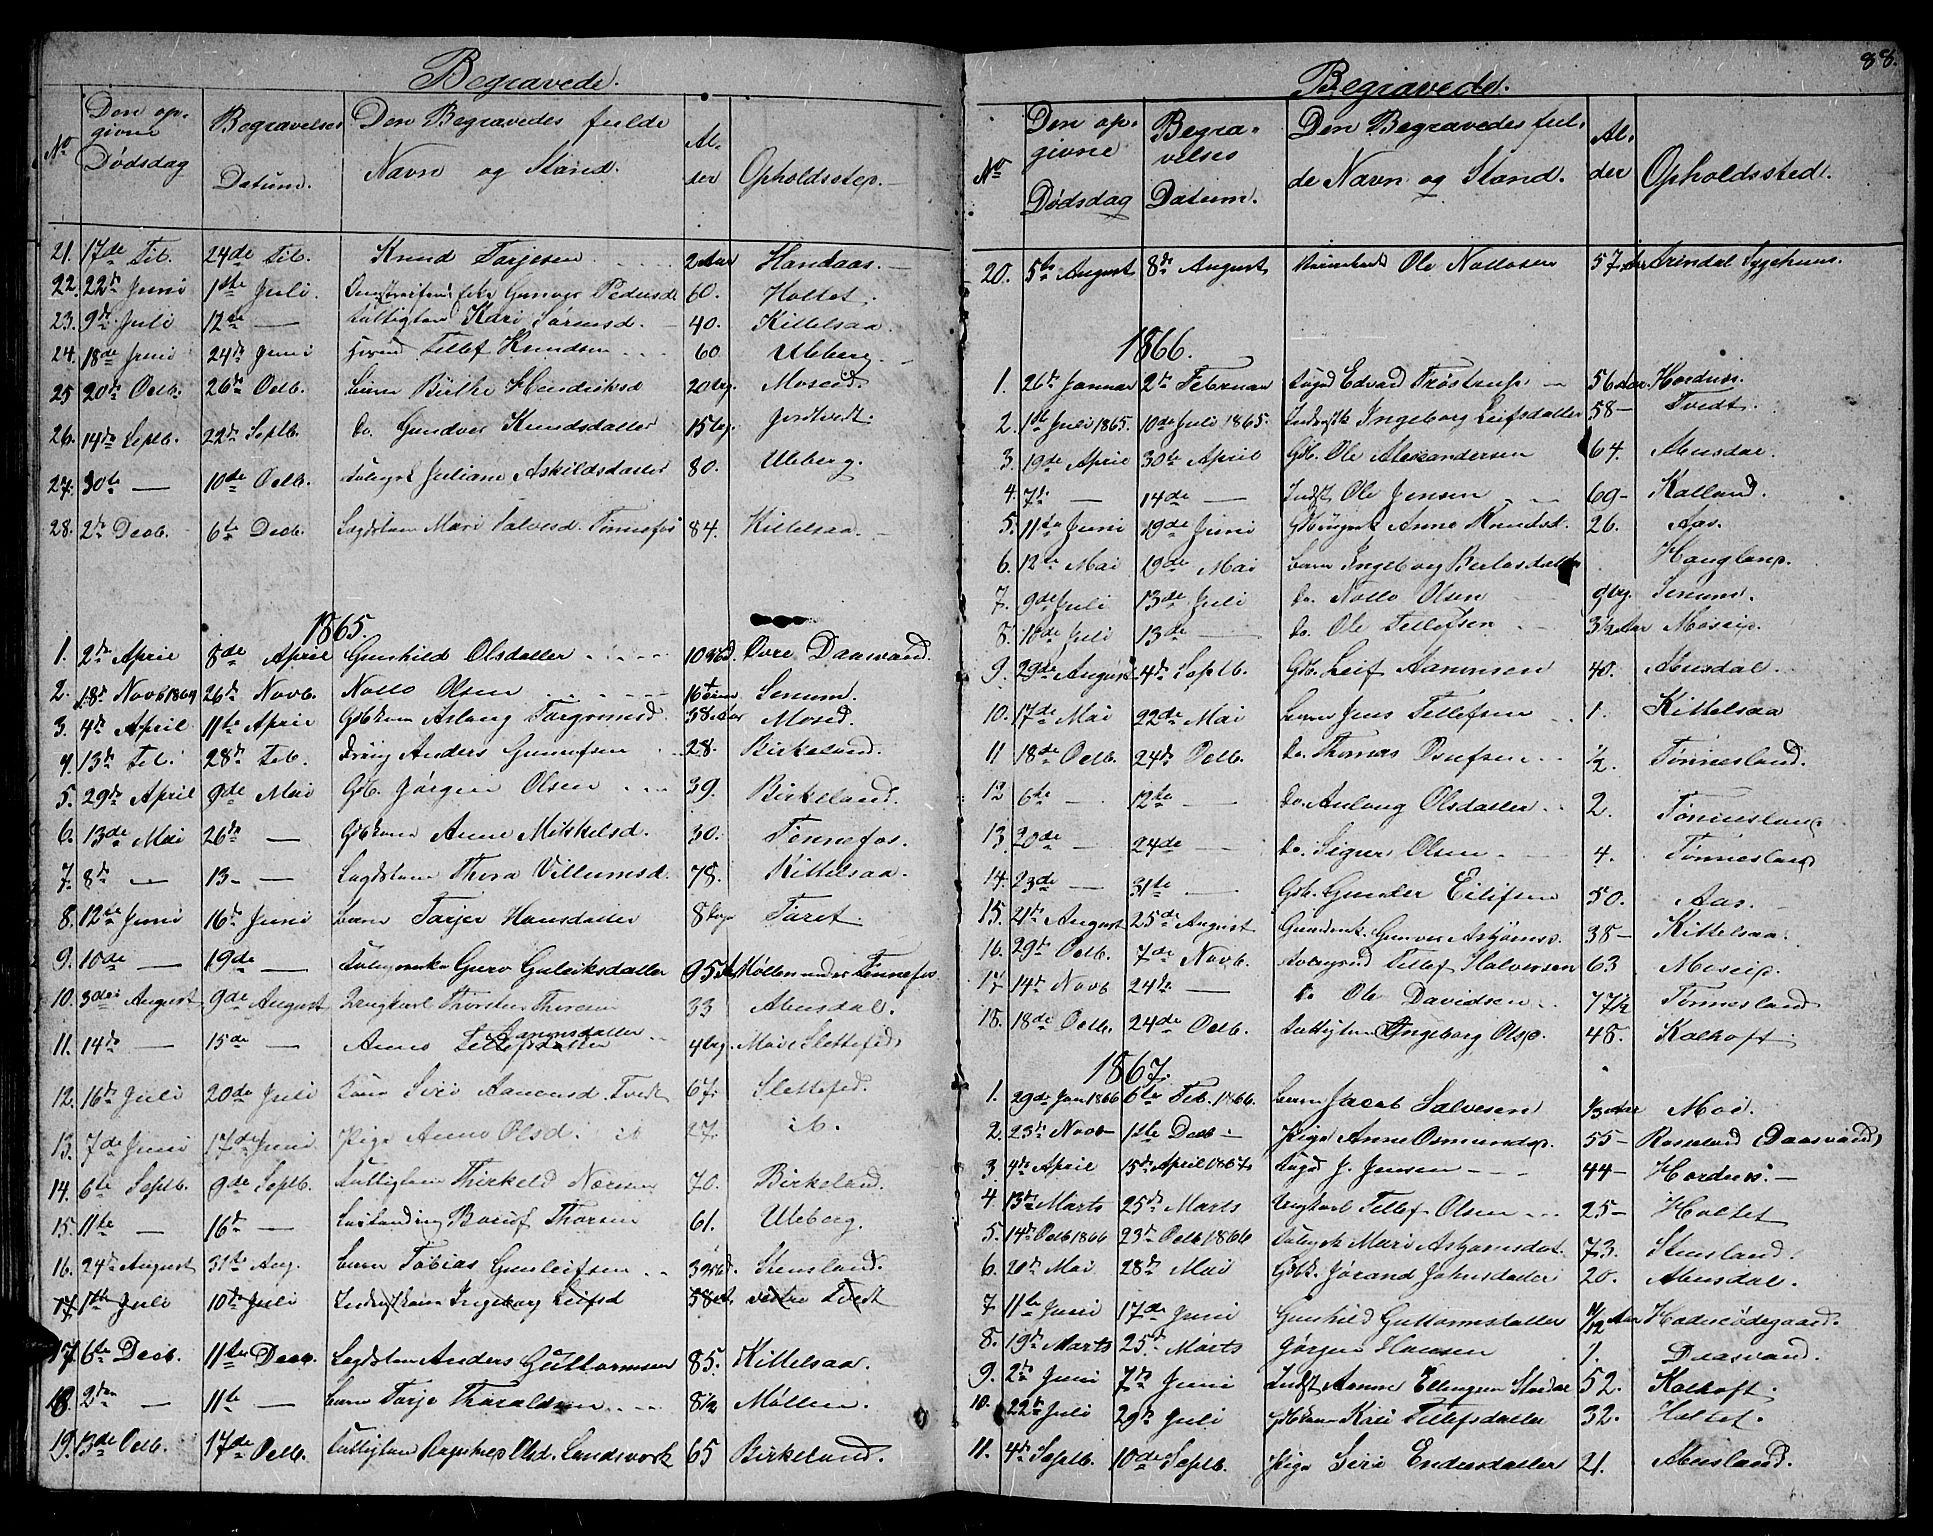 88.
Begravede.
No Den opgivne Dødsdag Begravelses Datum. Den Begravedes fulde Navn og Stand. Alder Opholdsstep.
21. 17de Feb. 24de Feb. Knud Tarjesen 2 Aar Handaas.
22. 22de Juni 1ste Juli. Gunver Pedersd 60. Holtet.
23. 9de Juli 12te — Kari Sørensd. 40. Kittelsaa.
24. 18de Juni 24de Juni Tellef Knudsen 60 Uleberg.
25 20de Octb. 26de Octb. Barn Birthe Hendriksd 20 Dg. Moseid.
26. 14de Septb. 22de Septb. do. Gundver Knudsdatter 15 Dg. Jordtvedt.
27. 30te — 10de Octb. Juliane Askildsdatter 80. Uleberg.
28. 2de Decb. 6te Decb. Mari Salvesd. Tønnefos 84. Kittelsaa.
1865.
1. 2de April 8de April Gunhild Olsdatter 10 Md. Øvre Daasvand.
2. 18de Novb 1864 26de Novb. Nollo Olsen 16 Senum.
3. 4de April 11te April Gbkone Aslaug Torgrimsd. 38 Aar Moseid.
4. 13de Feb. 28de Feb. Anders Gunufsen 28. Birkeland.
5. 29de April 9de Mai Gb. Jørgen Olsen 39. Birkeland.
6. 13de Mai 26de — Gbkone Anne Mikkelsd. 30. Tønnefos.
7. 8de — 13 — Thora Villumsd. 78. Kittelsaa.
8. 12te Juni 16de Juni Barn Tarjer Hansdatter 8 Dage Taret.
9. 10de — 19de — Guro Gulriksdatter 95 Møllen under Tønnefos.
10. 3die August 9de August Ungkarl Thorsten Thorsen 33 Abusdal.
11. 14de — 15de — Anne Tellefsdatter Aanonsdatter 4 Dg. Moi Slettefed
12. 16de Juli 20de Juli Kone Siri Aanonsd. Tvedt 67. Slettefed.
13. 7de Juni 17de Juni. Pige Anne Olsd. ib 27. ib.
14. 6te Septb. 9de Septb. Fattiglem Thirkeld Næsen 70. Birkeland.
15. 11te — 16de — Thorsen 61. Uleberg.
16. 24de August 31te Aug. Barn Tobias Gunleifsen 3 Md. Stensland.
17. 1ste Juli 10de Juli Indst kone Ingeborg Leifsd 58 vestre Tvedt
17. 6te Decb. 11te Decb. Anders Guttormsen 85. Kittelsaa.
18. 2den — 11te — Barn Tarje Tharaldsen 8 1/2 Møllen.
19. 13de Octb. 17de Octb. Fattiglem Olsd. Landsverk 65 Birkeland.
Begravede.
No Den opgivne Dødsdag Begravelses Datum. Den Begravedes fulde Navn og Stand. Alder Opholdssted.
20. 5te August 8de August Ole Nollosen 57 Aar Arendal Sygehuus.
1866.
1. 26de Januar 2de Februar Edvard Trøstrup 56 Aar. Hordnes.
2. 1ste Juli 1865. 10de Juli 1865. Ingeborg Leifsdatter 58 — Tvedt.
3. 19de April 30te April Gb. Ole Alexandersen 64. Abusdal.
4. 7de — 14de — Indst Ole Jensen 69 — Kalland.
5. 11te Juni 19de Juni Anne Knudsd. 26. Aas.
6. 12te Mai 19de Mai Barn Ingeborg Haugland.
7. 9de Juli 13de Juli do. Nollo Olsen 9 Dg. Senum.
8. 10de Juli 13de — do. Ole Tellefsen 3 1/2 Aar Moseid.
9. 29de August 4de Septb. Gb. Leif Aanonsen 40. Abusdal.
10. 17de Mai 22de Mai Barn Jens Tellefsen 1. Kittelsaa
11 18de Octb. 24de Octb. do. Thomas 1/2. Tønnesland.
12 6te — 12te — do. Anlaug Olsdatter 2. Tønnesland
13. 20de — 24de — do. Sigur Olsen 4. Tønnesland
14. 23de — 31te — Gb. Gunder Eilifsen 50. Aas.
15. 21de August 25de August Gunver Asbjørnsd. 38 — Kittelsaa.
16. 29de Octb. 7de Novb. Tellef Halversen 63 Moseid.
17 14de Novb 24de — do Ole Davidsen 77 1/2 Tønnesland
18. 18de Octb. 24de Octb. Fattiglem Ingeborg Olsd. 48. Kalhoft
1867.
1. 29de Jan 1866 6te Feb. 1866. Barn Jacob Salvesen 1/3 Aar Moi.
2. 23de Novb — 1ste Decb — Pige Anne Osmundsd. 55 — Rosseland (Daasvand)
3 4de April 15de April 1867. J. Jensen 44 — Hordnes. —
4. 13de Marts 25de Marts Ungkarl Tellef Olsen 25 — Holtet
5. 14de Octb 1866 23de Octb 1866 Mari Asbjørnsdat. 73. Stensland.
6. 20de Mai 28de Mai Gbk. Jørand Johnsdatter 20. Abusdal.
7 11te Juni 17de Juni Gunhild Guttormsdatter 11/12 Aar Hodnesødegaard.
8. 19de Marts 25de Marts Jørgen Hansen 1. Daasvand.
9. 2de Juni 7de Juni Indst Anne 52. Kalhoft.
10. 22de Juli 29de Juli Gbkone Kari Tellefsdatter 32. Holtet.
11. 4de Septb. 10de Septb. Pige Siri Endresdatter 21. Abusland.